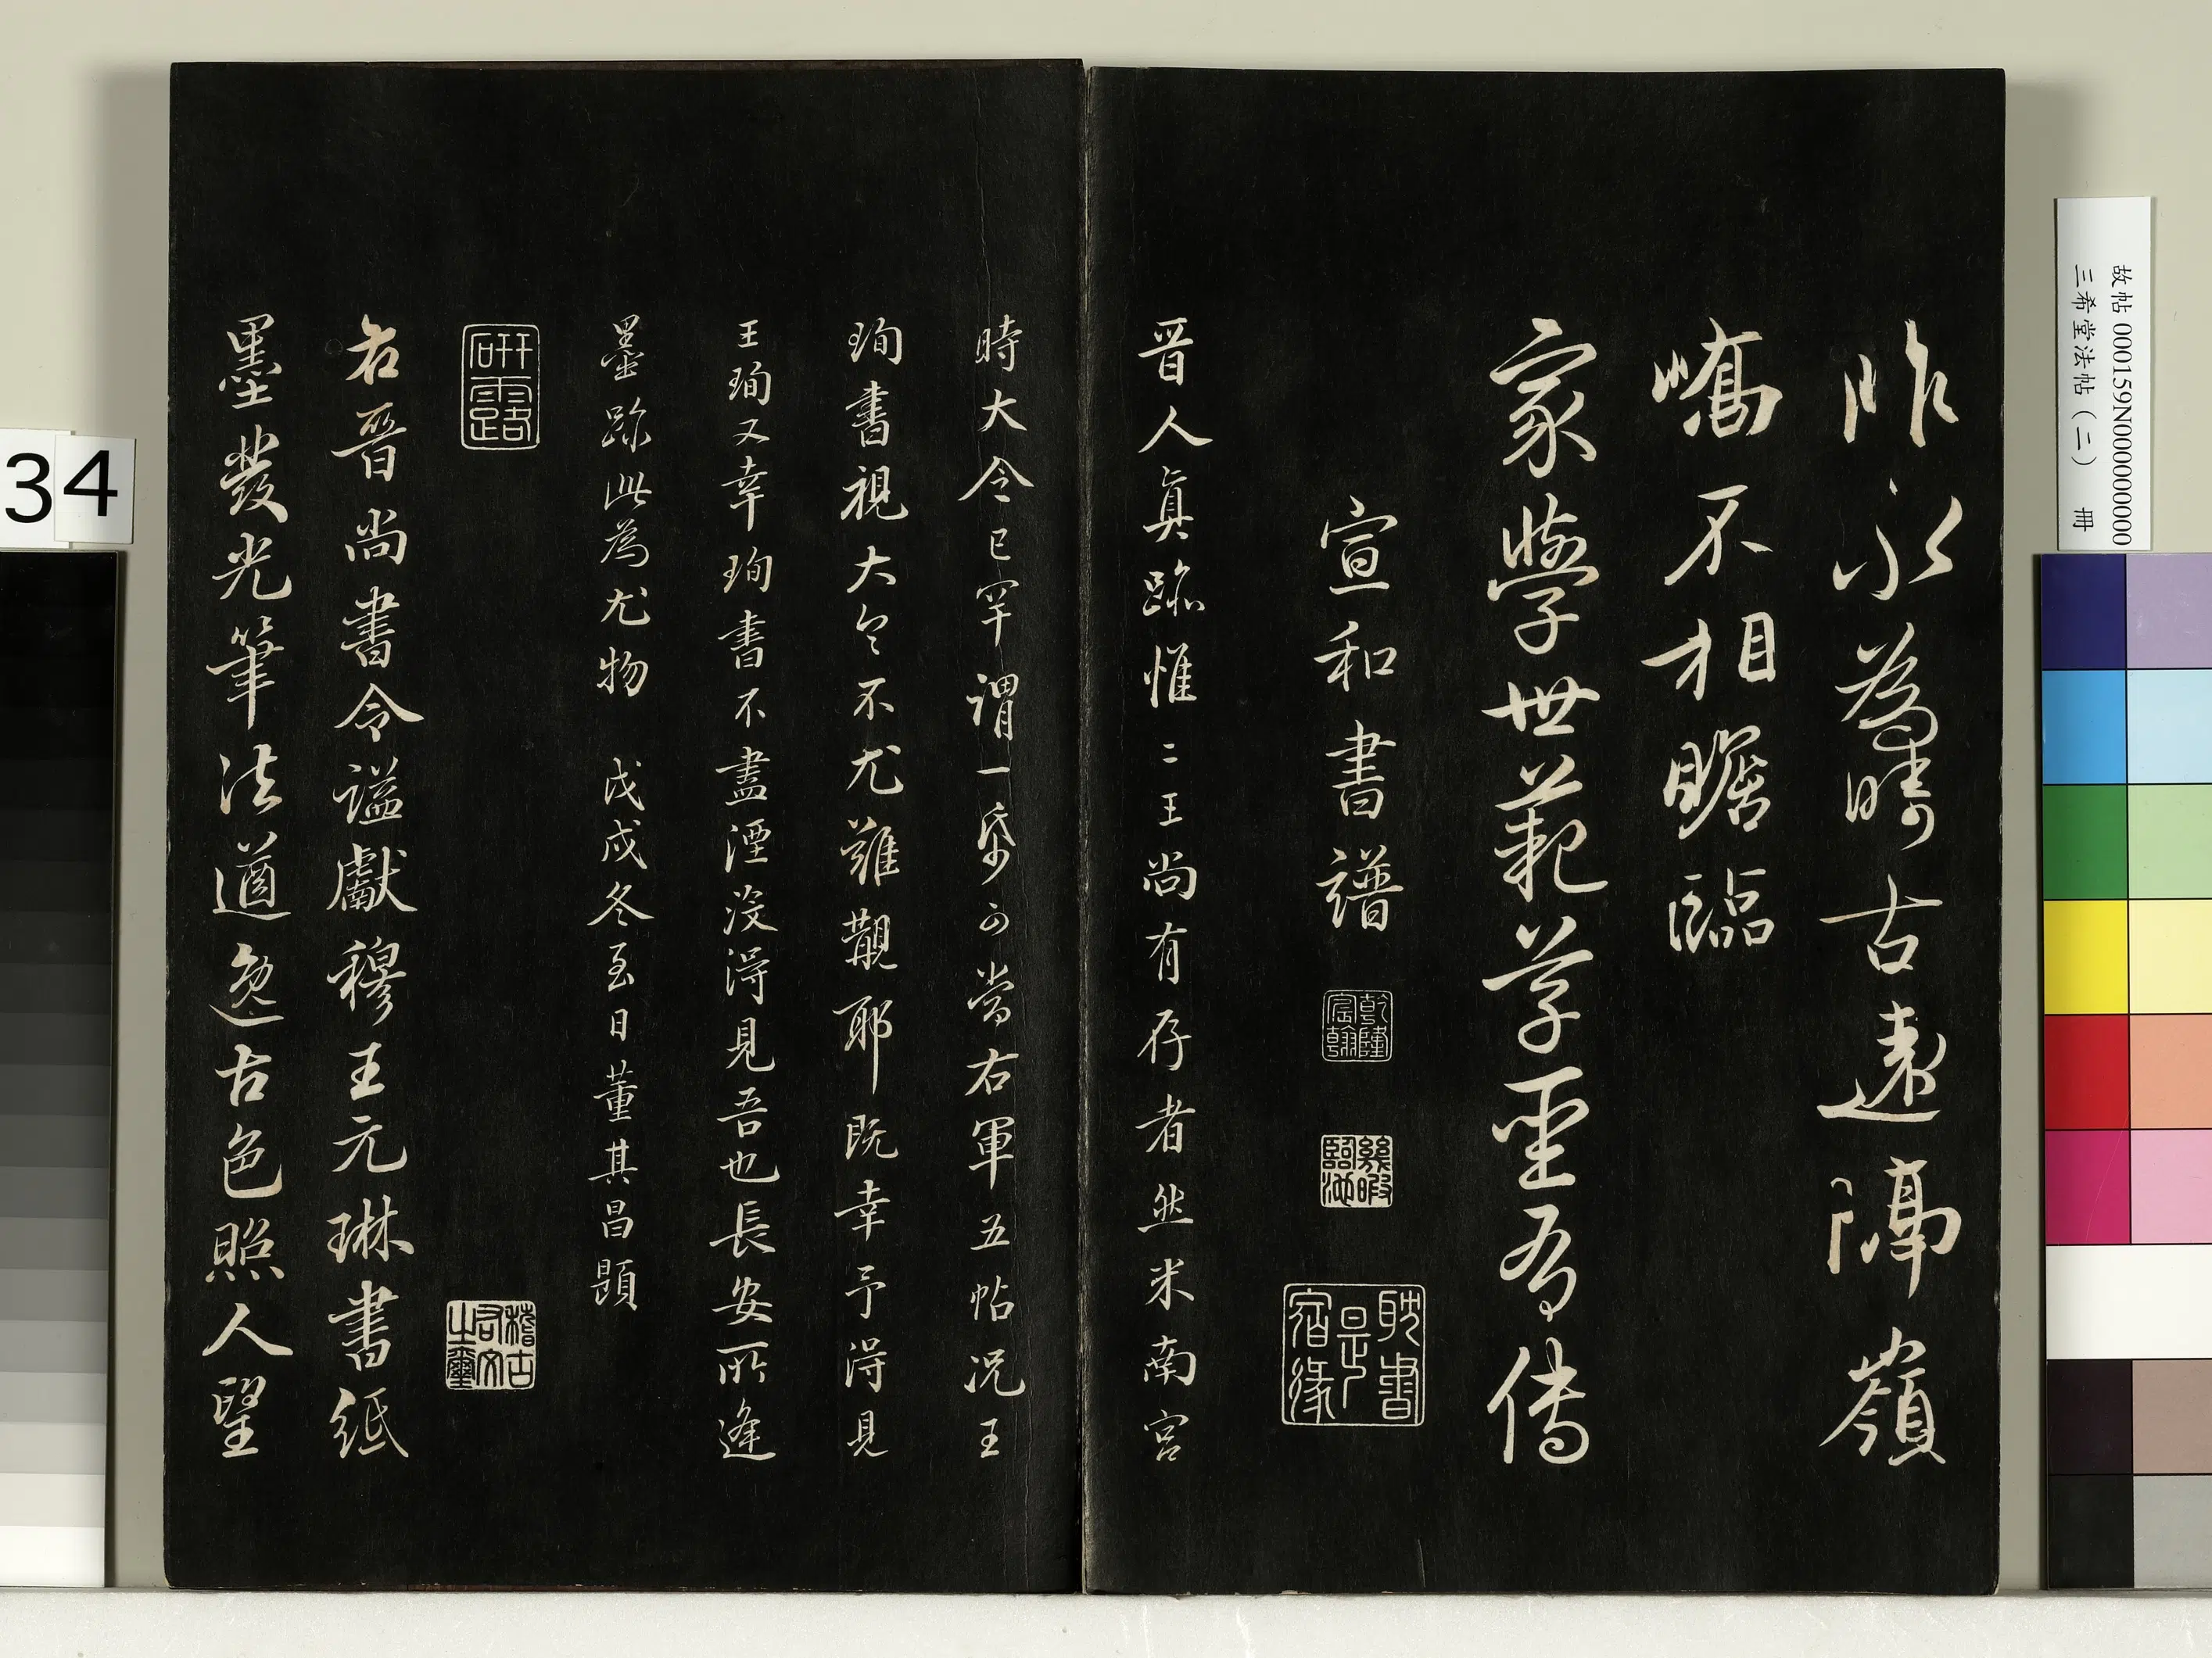 昨永為疇古遠隔嶺
嶠不相瞻臨
家學世範草聖有傳
宣和書譜
乾隆宸翰
幾暇臨池
耽書是宿緣
晉人真跡惟二王尚有存者然米南宮
時大令已罕謂一紙可當右軍五帖況王
珣書視大令不尤難覯耶既幸予得見
王珣又幸珣書不盡湮沒得見吾也長安所逢
墨跡此為尤物 戊戌冬至日董其昌題
研露
稽古右文之璽
右晉尚書令謚獻穆王元琳書紙
墨發光筆法遒逸古色照人望
故帖 000159N000000000
三希堂法帖（二） 冊
34